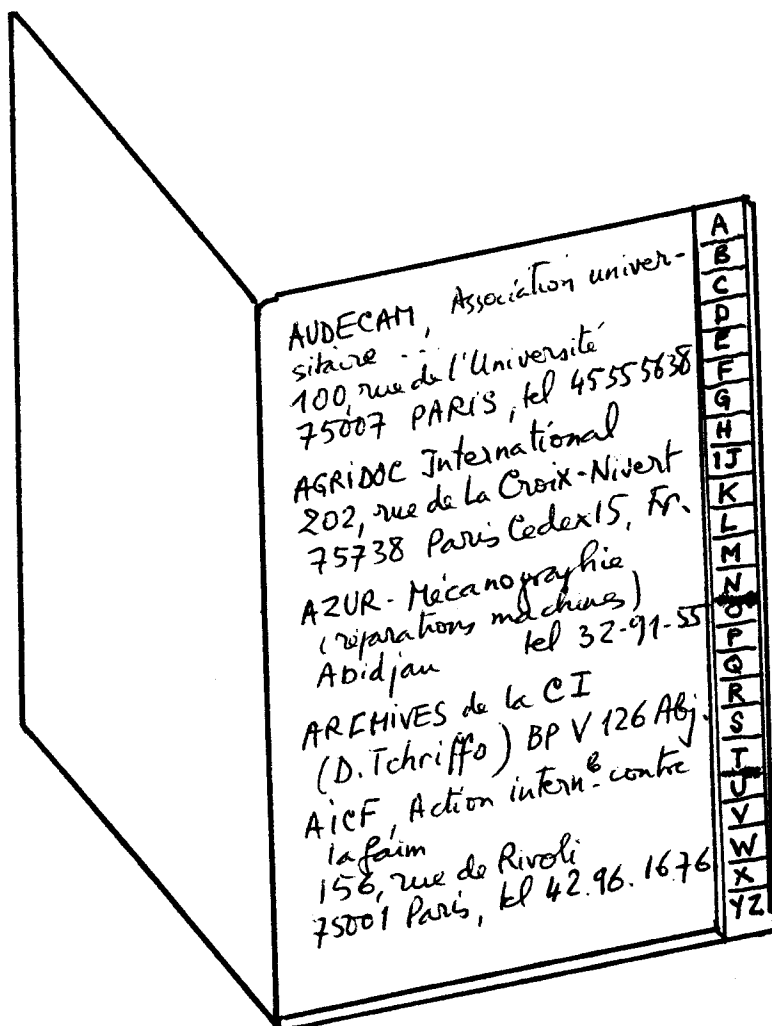 AUDECAM, Association univer-
sitaire ...
100, rue de l'Université
75007 PARIS, tel 45555638
AGRIDOC International
202, rue de La Croix-Nivert
75738 Paris Cedex 15, Fr.
AZUR - Mécanographie
(réparations machines)
Abidjan tel 32-91-55
ARCHIVES de la CI
(D. Tchriffo) BP V 126 Abj.
AiCF, Action intern^le contre
la faim
156, rue de Rivoli
75001 Paris, tel 42.96.16.76
A
B
C
D
E
F
G
H
IJ
K
L
M
N
O
P
Q
R
S
T
U
V
W
X
YZ